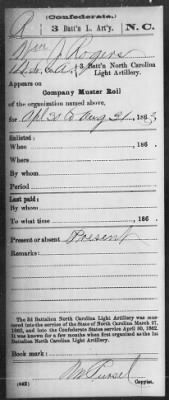 (Confederate.)
R 3 Batt'n L. Art'y. N.C.
Wm J Rogers
Co. A, 3 Batt'n North Carolina
Light Artillery.
Appears on
Company Muster Roll
of the organization named above,
for Apl 30 to Aug 31, 1863
Enlisted:
When , 186 .
Where
By whom
Period
Last paid:
By whom
To what time , 186 .
Present or absent Present
Remarks:
The 3d Battalion North Carolina Light Artillery was mustered into the service of the State of North Carolina March 17, 1862, and into the Confederate States service April 30, 1862. It was known for a few months when first organized as the 1st Battalion North Carolina Light Artillery.
Book mark:
Copyist.
(642)